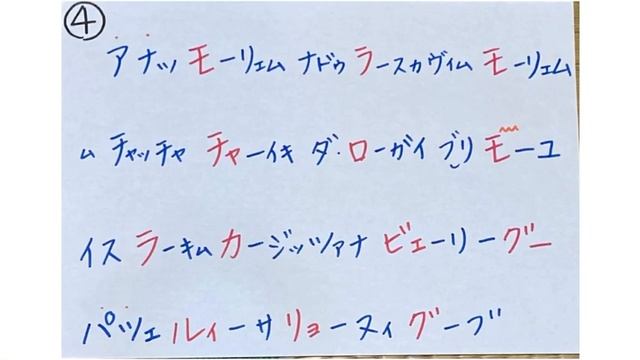 ④
アナッ モーリェム ナドゥ ラースカヴィム モーリェム
ム チャッチャ チャーイキ ダ・ローガイ ブリ モーユ
イス ラーキム カージッツァナ ビェーリーグー
パツェ ルィーサ リョーヌィ グーブ